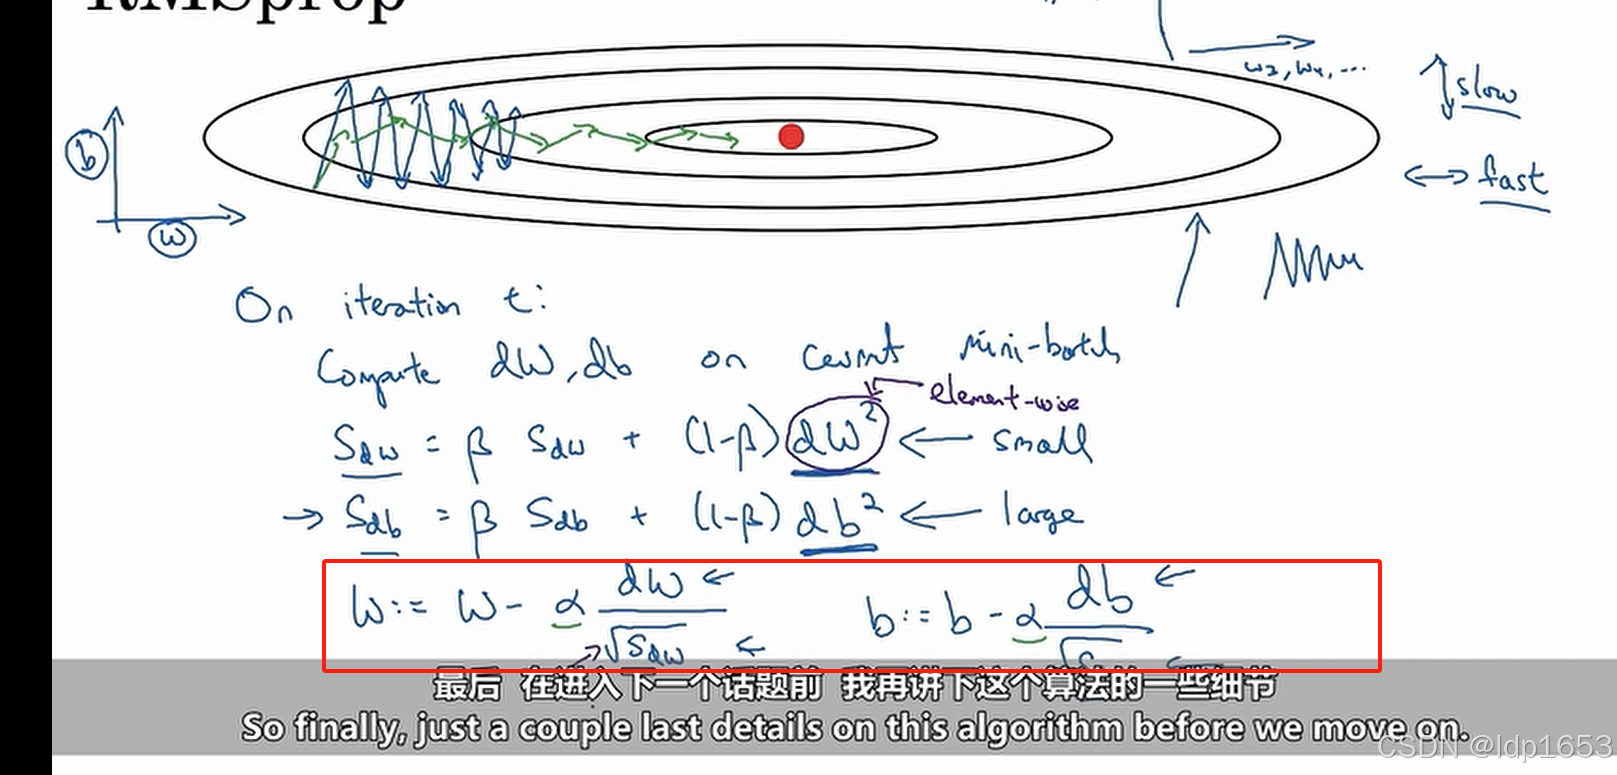 RMSprop
w₂, w₄, ...
slow
b
fast
w
On iteration t:
Compute dW, db on current mini-batch
element-wise
S_dw = β S_dw + (1-β) dW² ← small
→ S_db = β S_db + (1-β) db² ← large
W := W - α dW / √S_dw ← b := b - α db / √S ←
最后 在进入下一个话题前 我再讲下这个算法的一些细节
So finally, just a couple last details on this algorithm before we move on.
CSDN @ldp1653